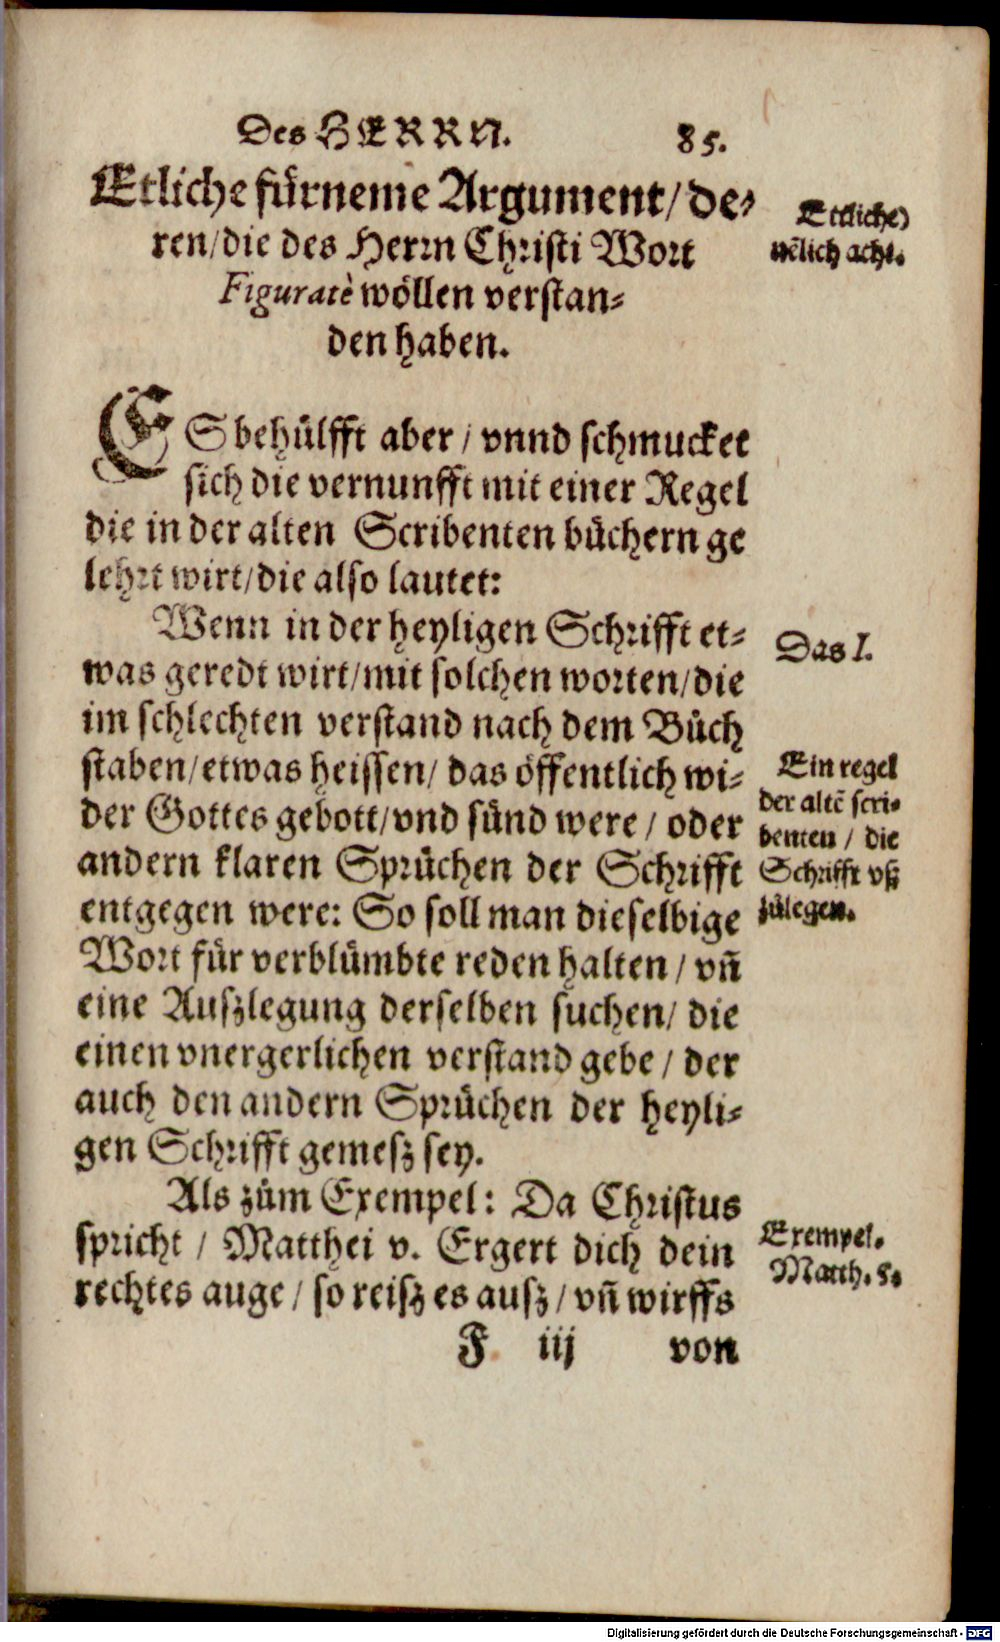 Des HERRN. 85.
Etliche fürneme Argument/ de-
ren/die des Herrn Christi Wort
Figuratè wöllen verstan-
den haben.
Ettliche)
nẽlich acht.
ES behülfft aber / vnnd schmucket
sich die vernunfft mit einer Regel
die in der alten Scribenten büchern ge
lehrt wirt/die also lautet:
Wenn in der heyligen Schrifft et-
was geredt wirt/mit solchen worten/die
im schlechten verstand nach dem Büch
staben/etwas heissen/ das öffentlich wi-
der Gottes gebott/vnd sünd were / oder
andern klaren Sprüchen der Schrifft
entgegen were: So soll man dieselbige
Wort für verblümbte reden halten / vñ
eine Auszlegung derselben suchen/ die
einen vnergerlichen verstand gebe / der
auch den andern Sprüchen der heyli-
gen Schrifft gemesz sey.
Das I.
Ein regel
der altẽ scri-
benten / die
Schrifft vß
zülegen.
Als züm Exempel: Da Christus
spricht / Matthei v. Ergert dich dein
rechtes auge / so reisz es ausz / vñ wirffs
Exempel.
Matth. 5.
F iij von
Digitalisierung gefördert durch die Deutsche Forschungsgemeinschaft - DFG